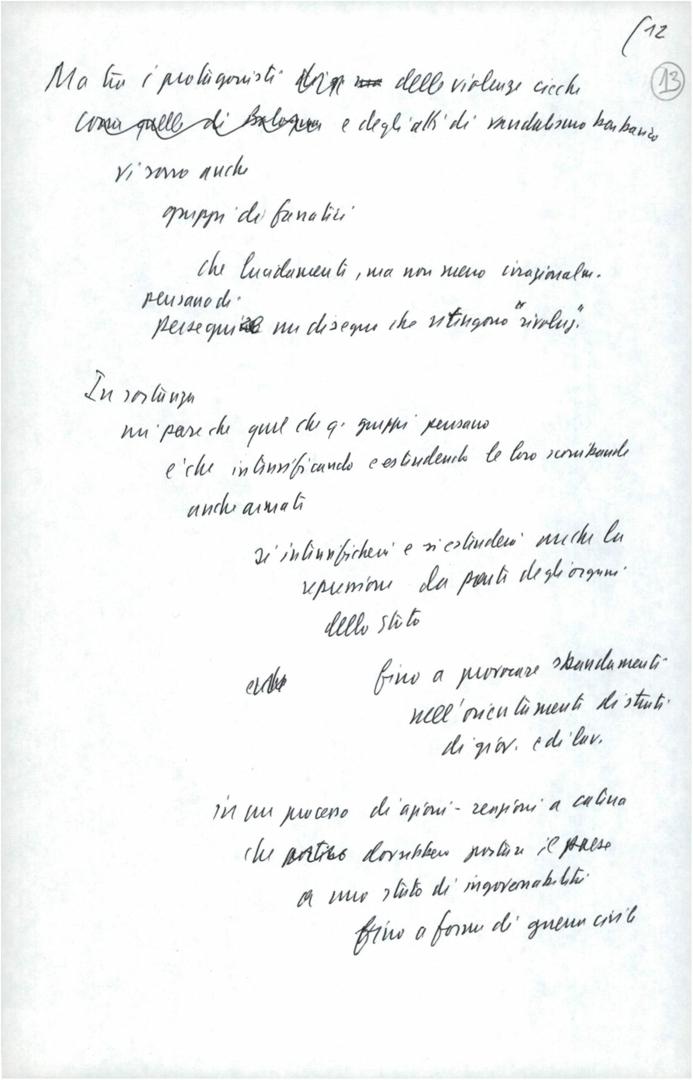 12
13
Ma tra i protagonisti delle violenze cieche
come quelle di Bologna e degli atti di vandalismo barbarico
vi sono anche
gruppi di fanatici
che lucidamenti, ma non meno irrazionalm.
pensano di
perseguire un disegno che ritengono "rivoluz."
In sostanza
mi pare che quel che q. gruppi pensano
è che intensificando e estendendo le loro scorribande
anche armati
si intensificherà e si estenderà anche la
repressione da parte degli organi
dello stato
fino a provocare sbandamenti
nell'orientamenti di strati
di giov. e di lav.
in un processo di azioni-reazioni a catena
che dovrebbero portare il paese
a uno stato di ingovernabilità
fino a forme di guerra civile